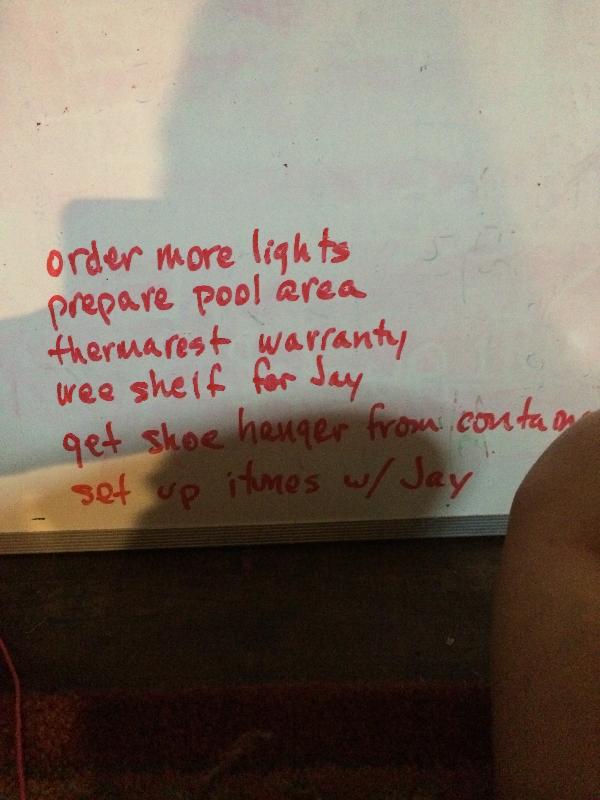 order more lights
prepare pool area
thermarest warranty
wee shelf for Jay
get shoe hanger from
set up itunes w/ Jay